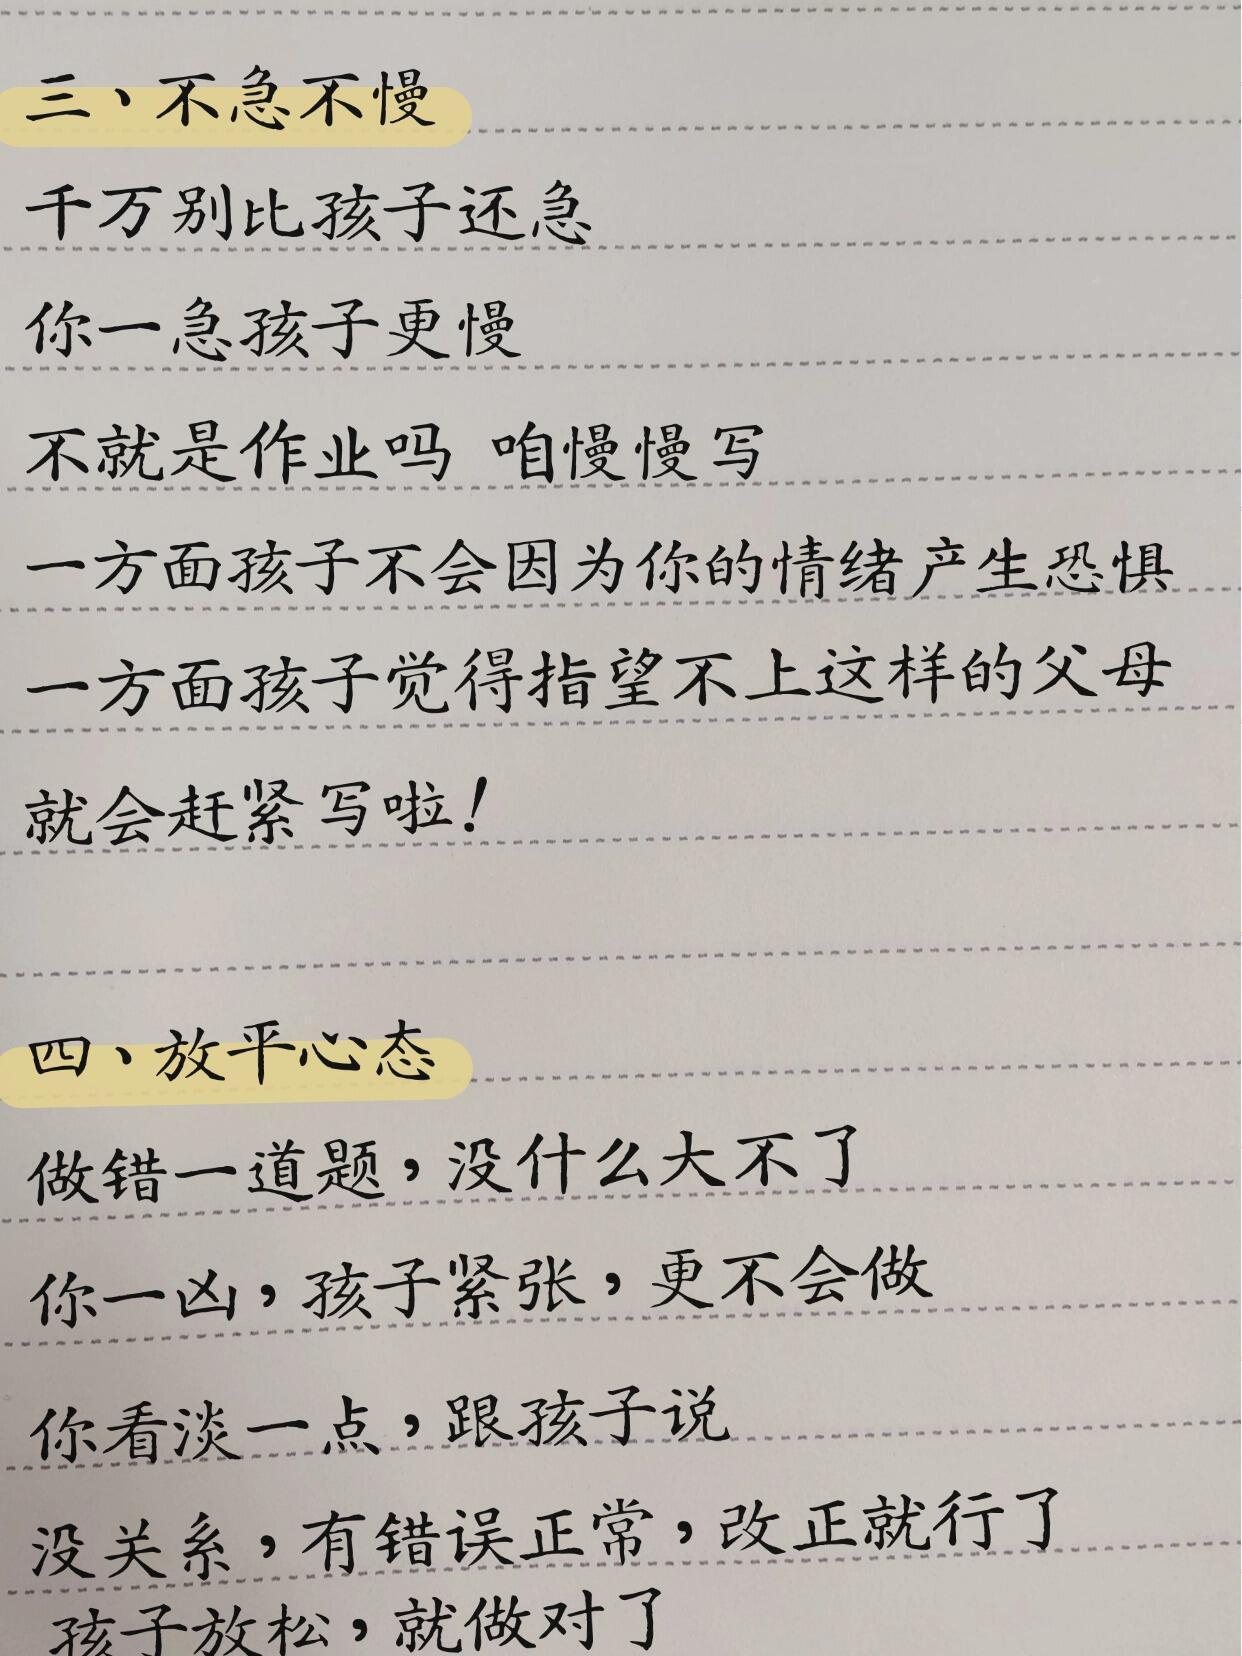 三、不急不慢
千万别比孩子还急
你一急孩子更慢
不就是作业吗 咱慢慢写
一方面孩子不会因为你的情绪产生恐惧
一方面孩子觉得指望不上这样的父母
就会赶紧写啦！
四、放平心态
做错一道题，没什么大不了
你一凶，孩子紧张，更不会做
你看淡一点，跟孩子说
没关系，有错误正常，改正就行了
孩子放松，就做对了